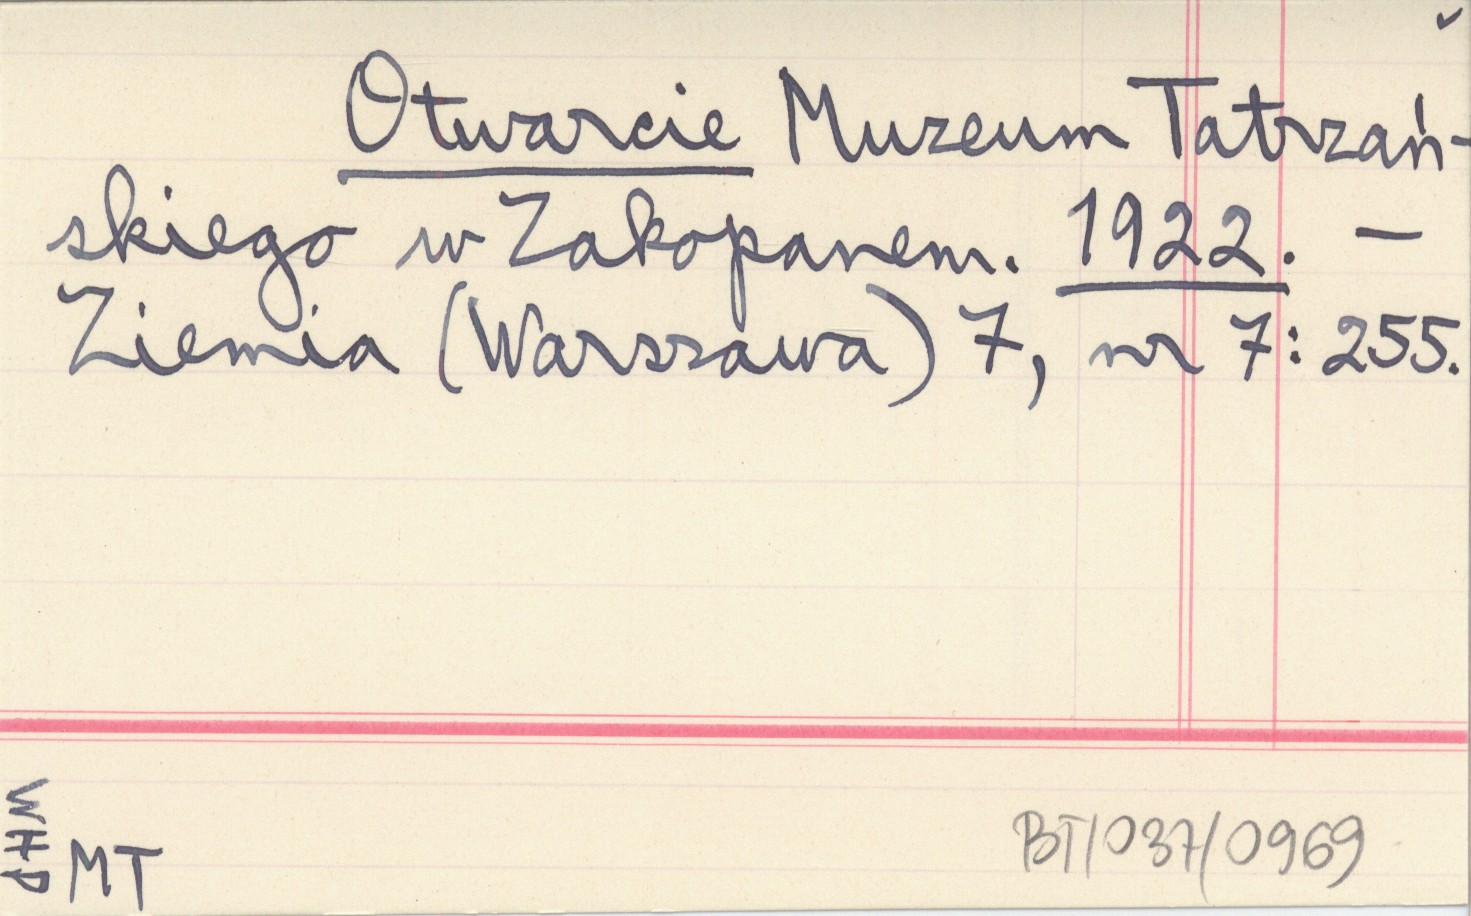 Otwarcie Muzeum Tatrzań-
skiego w Zakopanem. 1922. —
Ziemia (Warszawa) 7, nr 7: 255.
WHP
MT
BT/037/0969